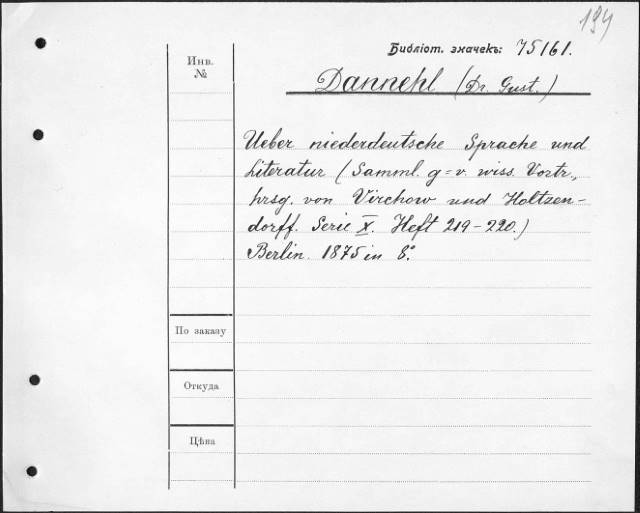 194
Библіот. значекъ: 75161.
Инв.
№
Dannehl (Dr. Gust.)
Ueber niederdeutsche Sprache und
Literatur (Samml. g=v. wiss. Vortr.,
hrsg. von Virchow und Holtzen-
dorff. Serie X. Heft 219-220.)
Berlin. 1875 in 8°.
По заказу
Откуда
Цѣна